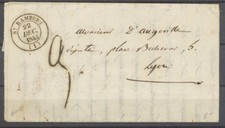 ST RAMBERT
22
DEC.
184
(1)
Monsieur D'Angeville
Député, place Bellecour, 6.
Lyon